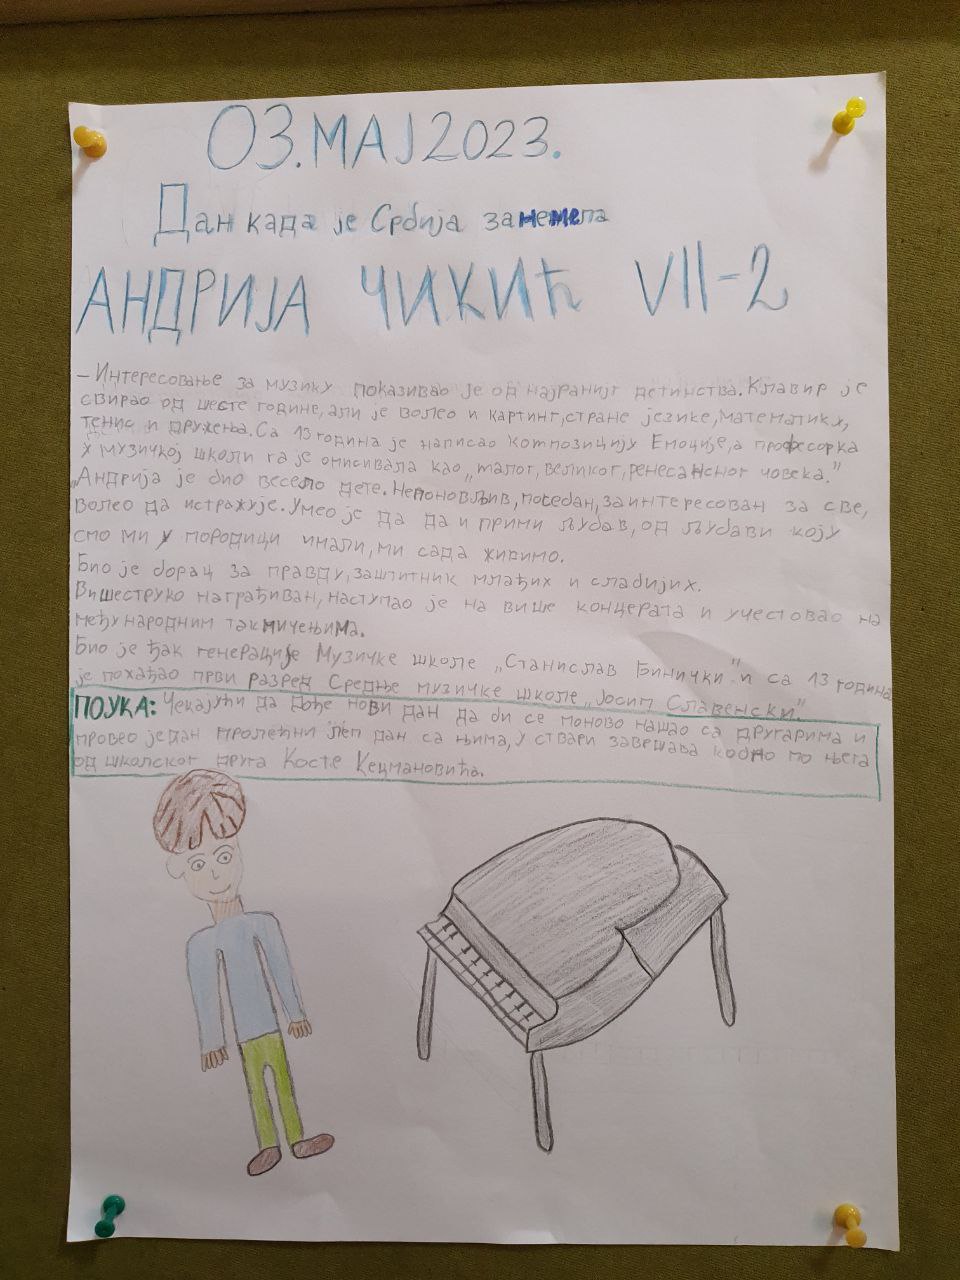 03. МАЈ 2023.
Дан када је Србија занемела
АНДРИЈА ЧИКИЋ VII-2
– Интересовање за музику показивао је од најранијг детинства. Клавир је
свирао од шесте године, али је волео и картинг, стране језике, математику,
тенис и дружења. Са 13 година је написао композицију Емоције, а професорка
у музичкој школи га је описивала као „малог, великог, ренесансног човека."
„Андрија је био весело дете. Непоновљив, посебан, заинтересован за све,
волео да истражује. Умео је да да и прими љубав, од љубави коју
смо ми у породици имали, ми сада живимо.
Био је борац за правду, заштитник млађих и слабијих.
Вишеструко награђиван, наступао је на више концерата и учестовао на
међународним такмичењима.
Био је ђак генерације Музичке школе „Станислав Бинички" и са 13 година
је похађао први разред Средње музичке школе „Јосип Славенски".
ПОУКА: Чекајући да дође нови дан да би се поново нашао са другарима и
провео један пролећни леп дан са њима, у ствари завршава кобно по њега
од школског друга Косте Кецмановића.